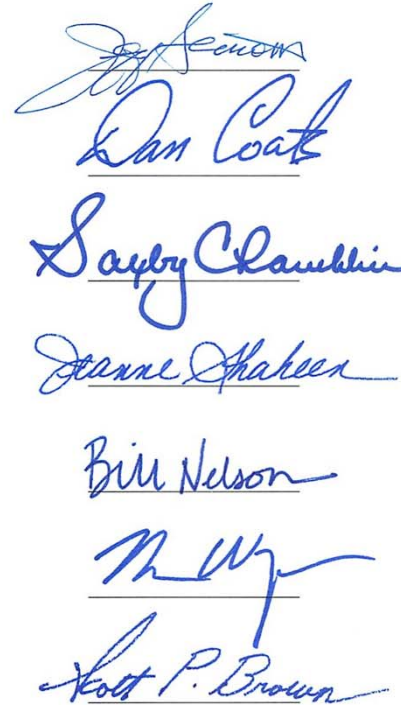 Dan Coats
Saxby Chambliss
Jeanne Shaheen
Bill Nelson
Scott P. Brown